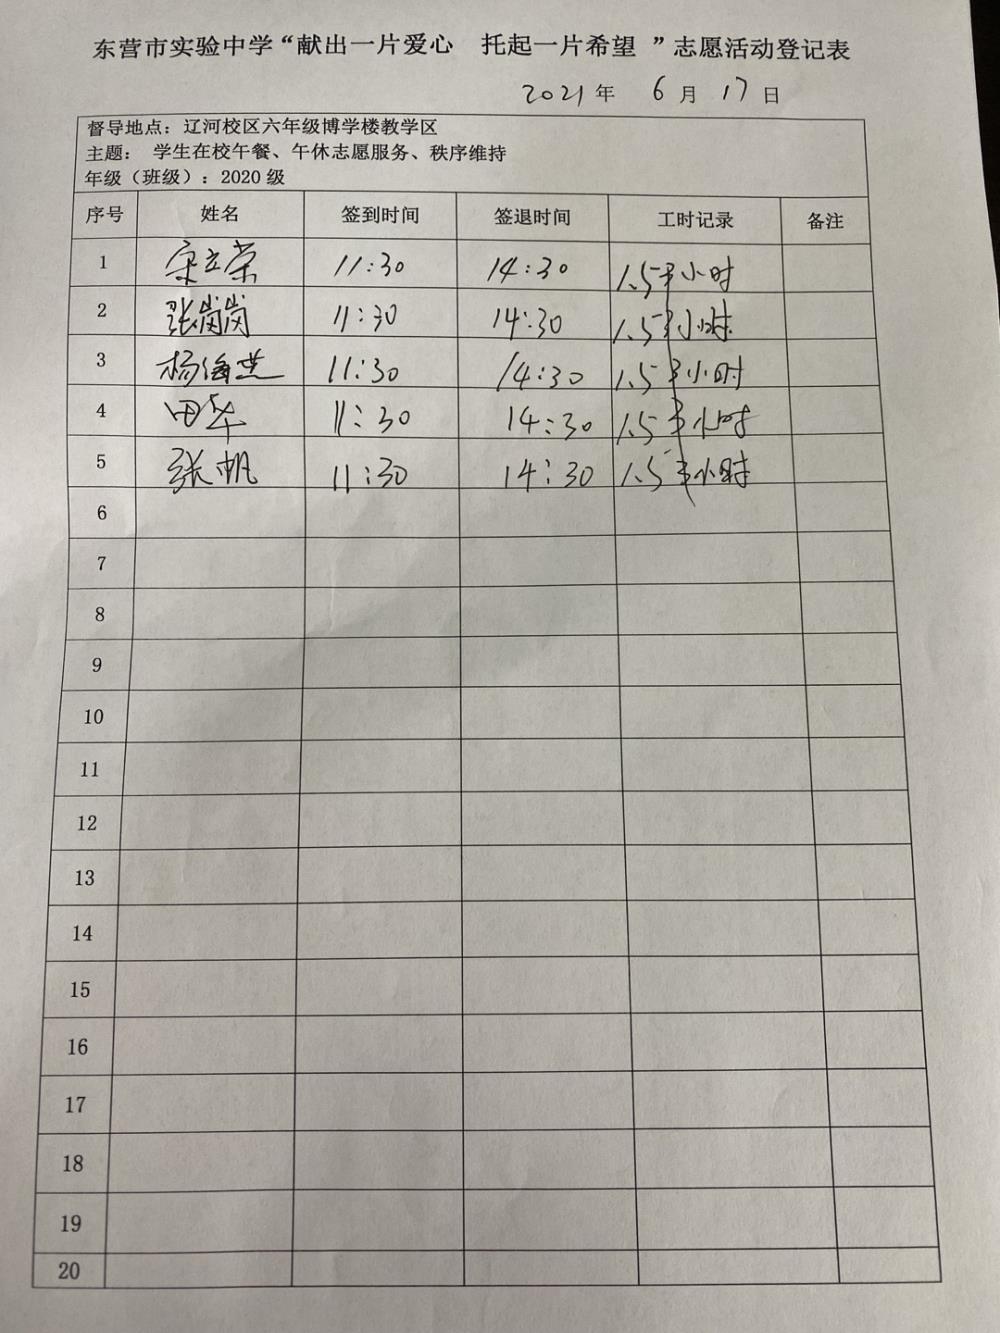 东营市实验中学“献出一片爱心 托起一片希望 ”志愿活动登记表
2021 年 6 月 17 日
督导地点：辽河校区六年级博学楼教学区
主题： 学生在校午餐、午休志愿服务、秩序维持
年级（班级）：2020 级
序号 姓名 签到时间 签退时间 工时记录 备注
1 宋立荣 11:30 14:30 1.5 小时
2 张岗岗 11:30 14:30 1.5 小时
3 杨海燕 11:30 14:30 1.5 小时
4 田华 11:30 14:30 1.5 小时
5 张帆 11:30 14:30 1.5 小时
6
7
8
9
10
11
12
13
14
15
16
17
18
19
20